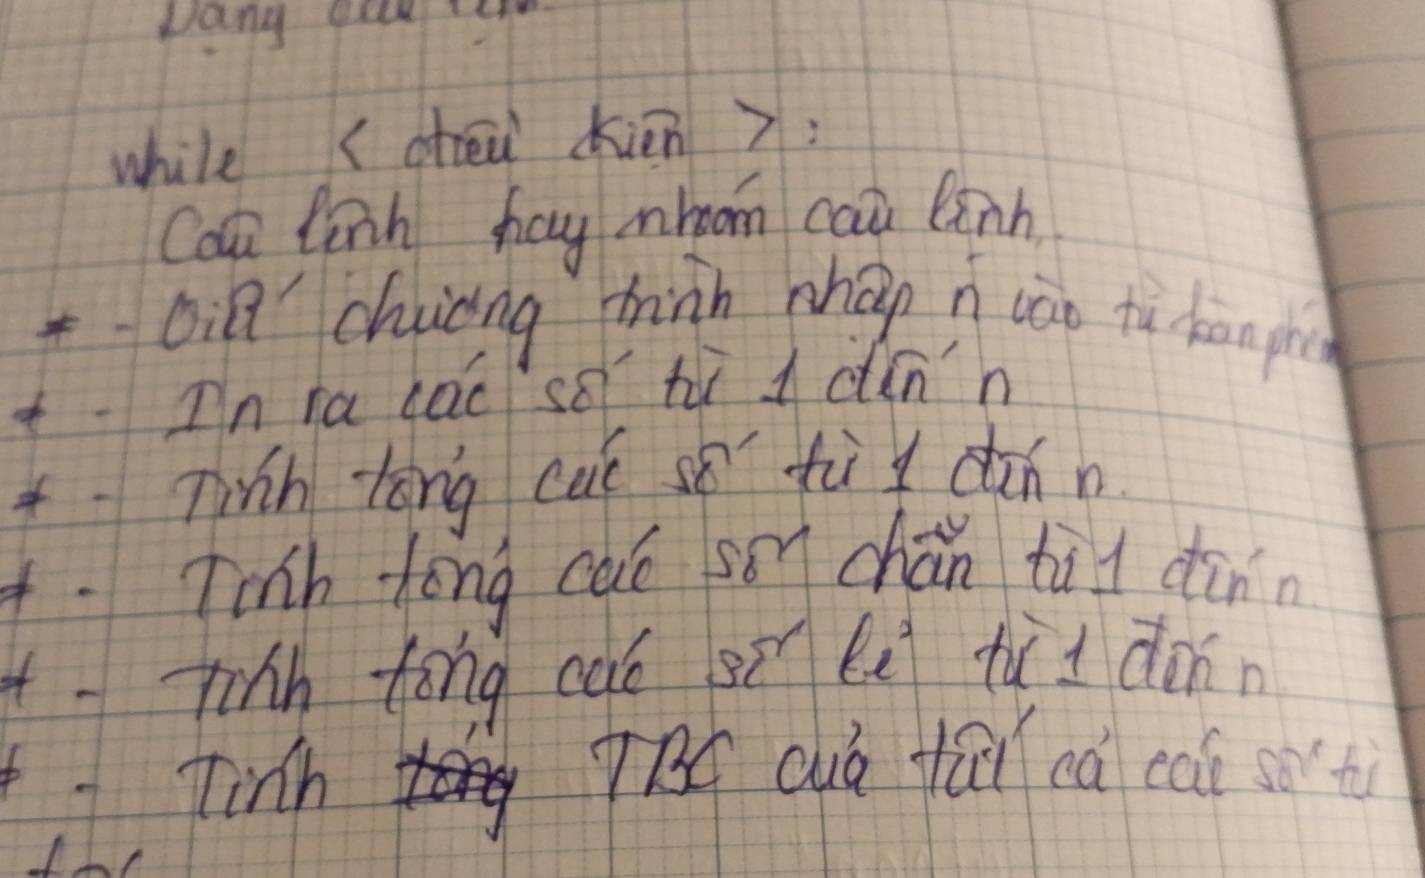 Dạng câu lệnh
while < điều kiện > :
Câu lệnh hay nhóm câu lệnh
* - Viết chương trình nhập n vào từ bàn phím
* - In ra các số từ 1 đến n
* - Tính tổng các số từ 1 đến n.
* - Tính tổng các số chẵn từ 1 đến n
* - Tính tổng các số lẻ từ 1 đến n
* - Tính TBC của tất cả các số từ